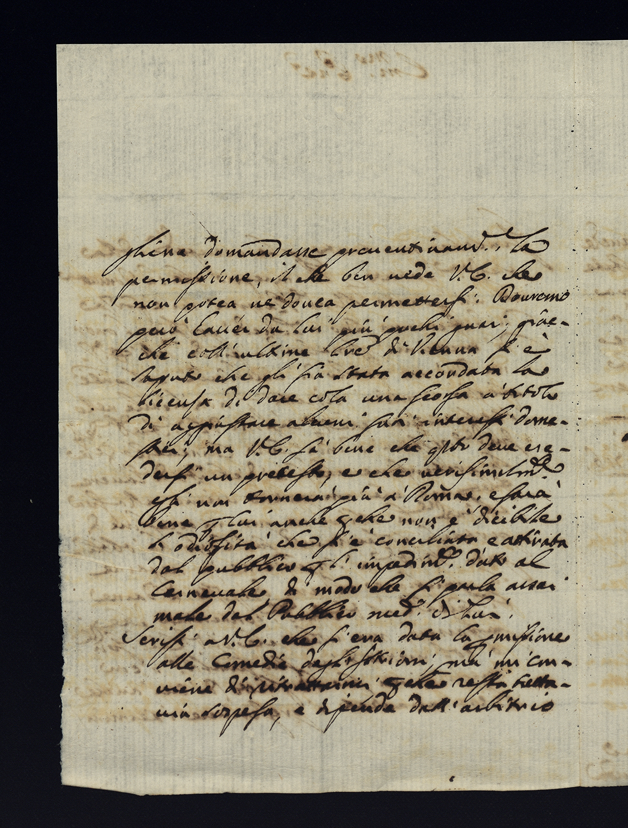 gliene domandasse preventivam.te la
permissione, il che ben vede V.E. che
non potea ne dovea permettersi. Dovremo
però laver da lui più pochi guai, giac-
che coll'ultime l're di Vienna si è
saputo che gli sia stata accordata la
licenza di dare colà una scorsa a titolo
di aggiustare alcuni suoi interessi dome-
stici; ma V.E. sà bene che q'sto deve cre-
dersi un pretesto, e che verisimilm.te
egli non tornerà più a Roma, e sarà
bene p lui anche pche non è dicibile
l'odiosità che si è conciliata e attirata
dal pubblico p gl'impedim.ti dati al
Carnevale di modo che si parla assai
male dal Pubblico med.o di Lui.
Scrissi a V.E. che si era data la pmissione
alle Comedie degl'Istrioni, ma mi con-
viene di ritrattarmi pche resta tutta-
via sospesa, e dipende dall'arbitrio